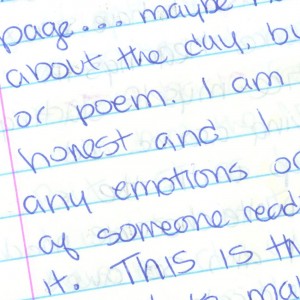 page... maybe
about the day, bu
or poem. I am
honest and I
any emotions or
of someone read
it. This is th
ma